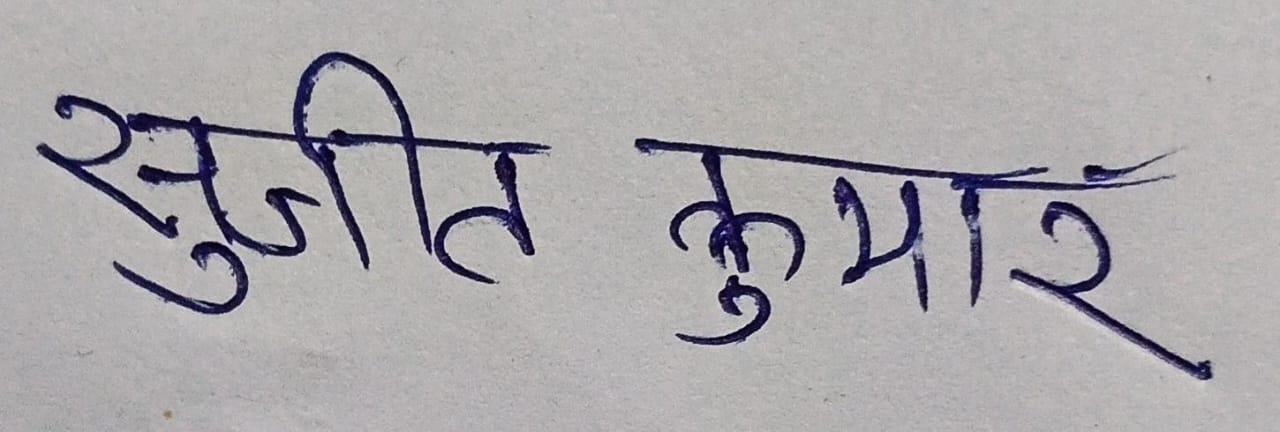 सुजीत कुमार